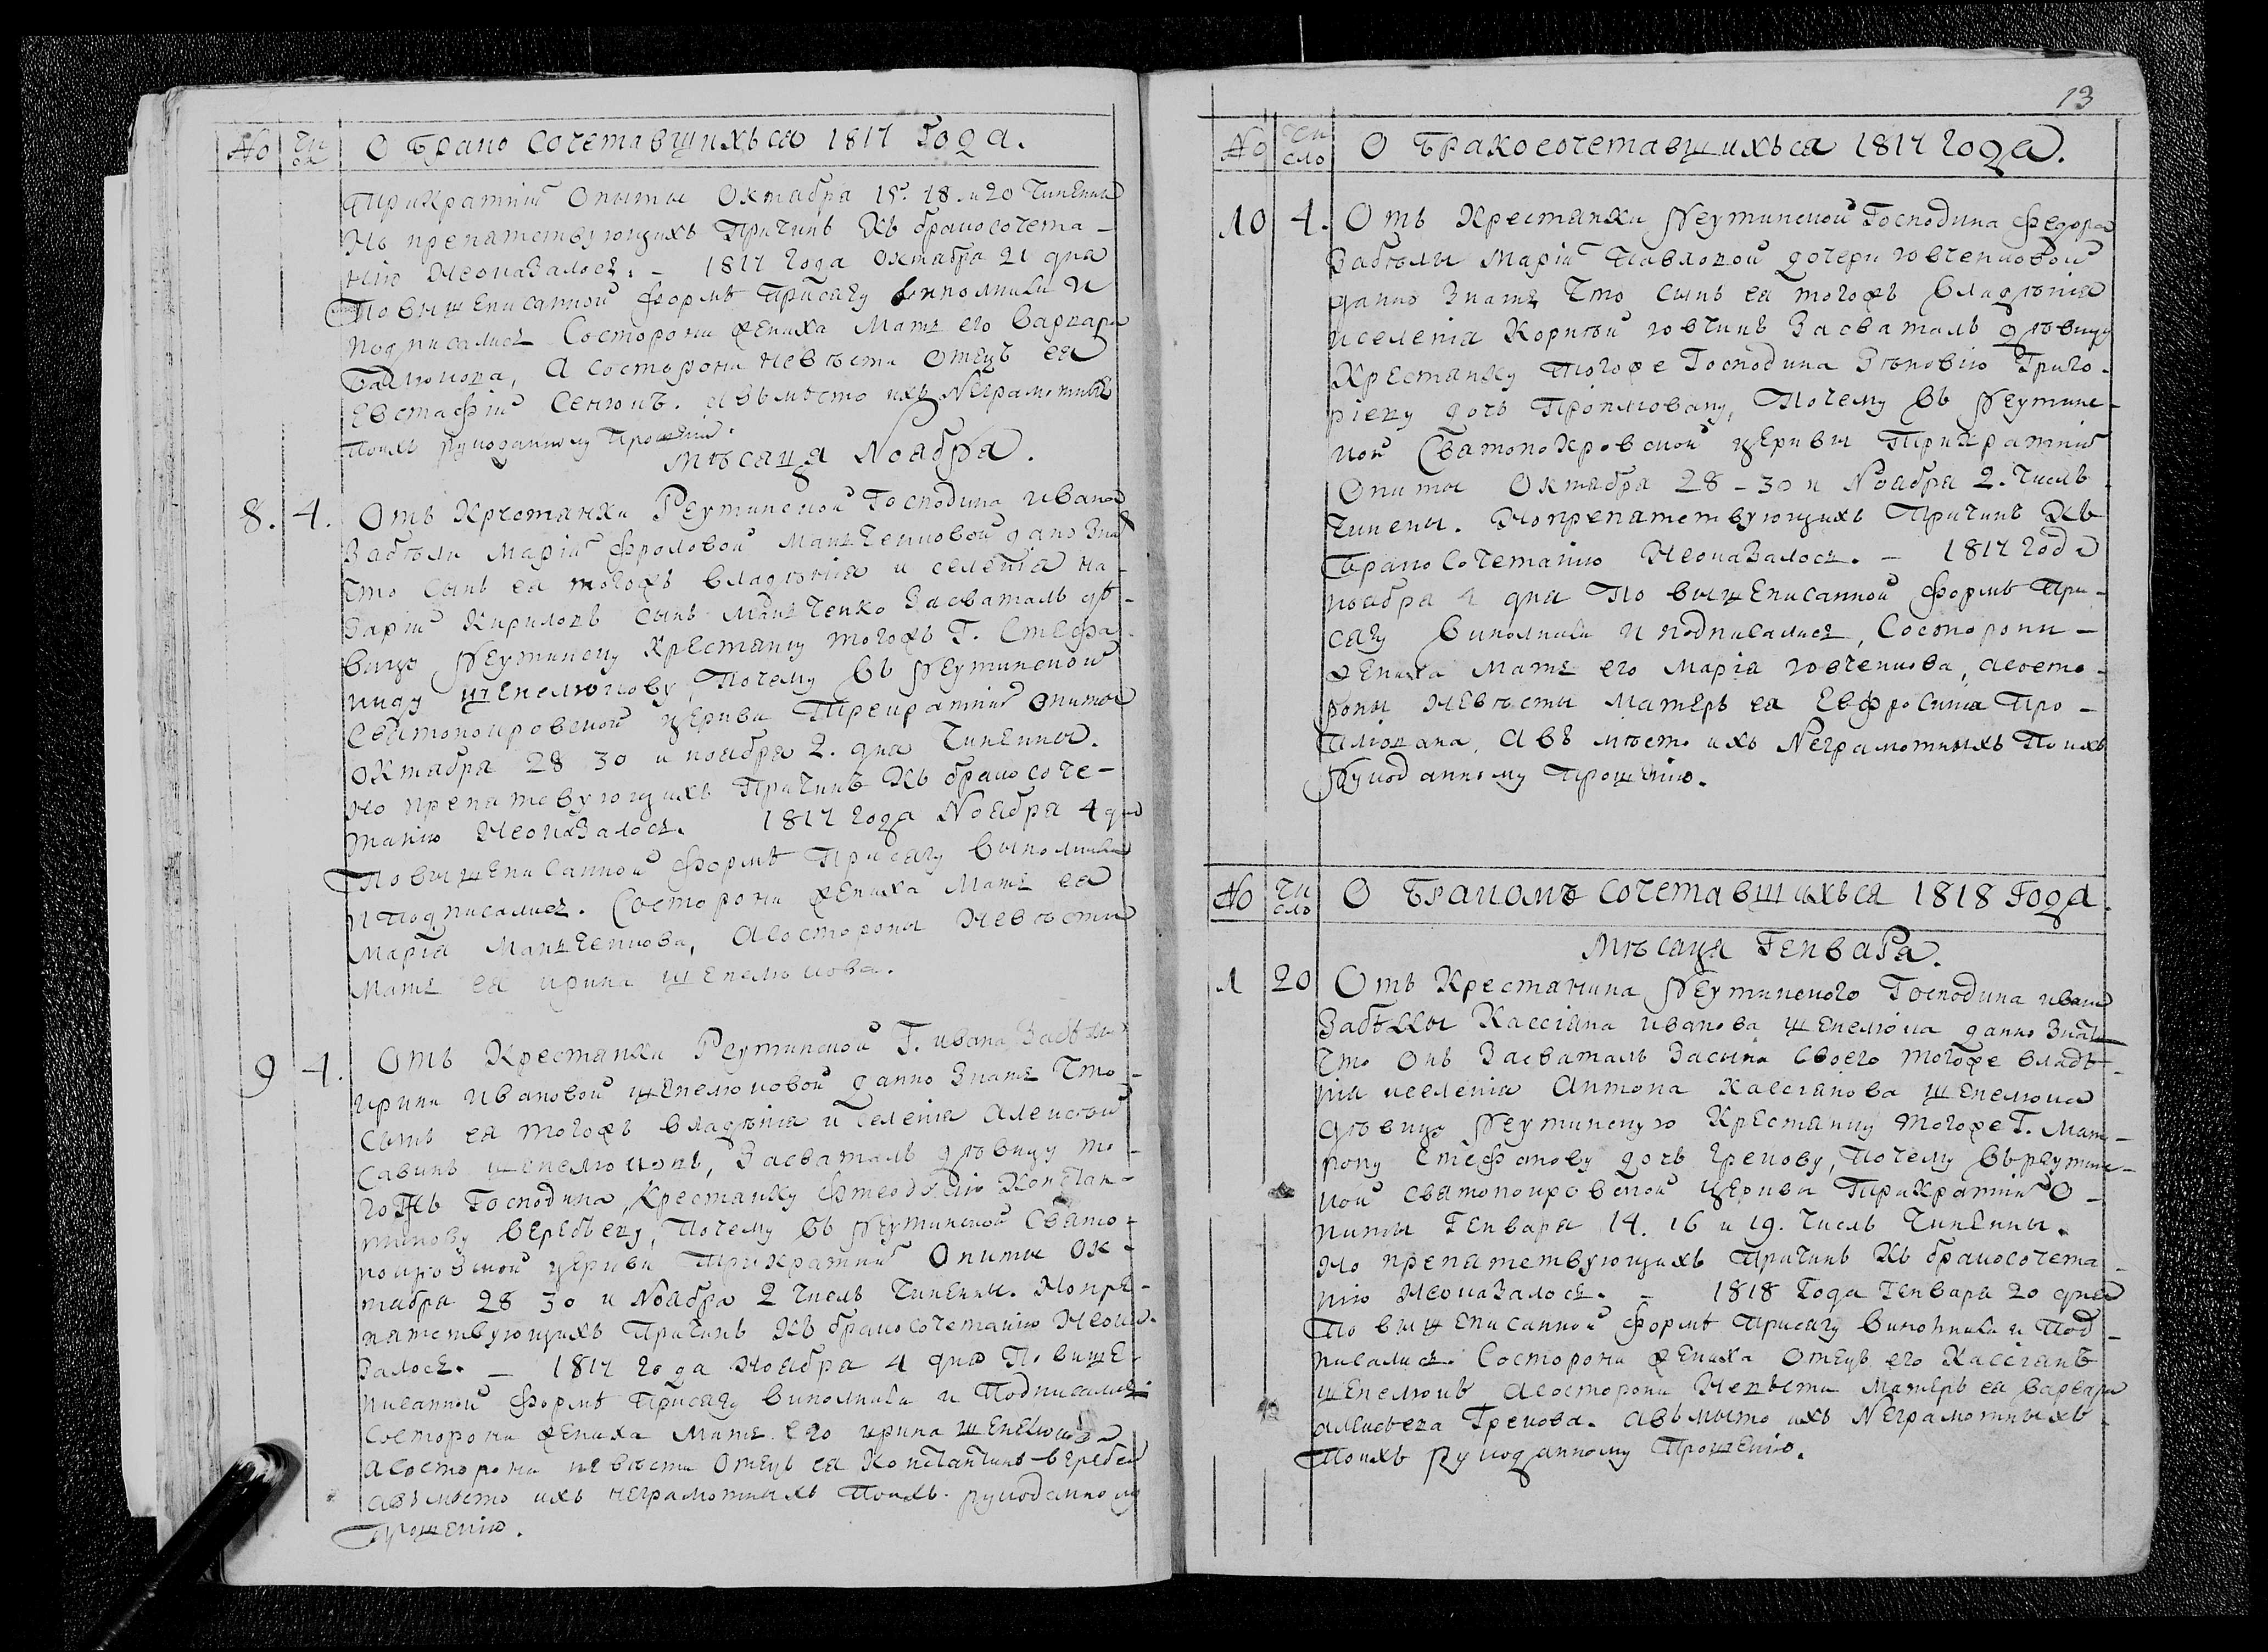 No Чи сл О Брако Сочетавшихъся 1817 Года.
Трикратніи Опыты Октабра 15. 18 и 20 Чиненны
Но препятствующихъ Причинъ Къ бракосочета-
нію Неоказалось. – 1817 Года Октабра 21 дня
По вышеписанной формѣ Присягу выполнили и
подписались Состороны жениха Мать его Варвара
а Состороны невѣсты Отецъ ея
Евстафій авъмѣсто ихъ Неграмотныхъ
Поихъ рукоданному Прошенію.
Мѣсаца Ноабра.
8. 4. Отъ Крестянки Реутинской Господина Ивана
Забѣлы Маріи Фроловой дано Знать
Что Сынъ ея тогожъ владѣнія и селенія На-
Зарій Кириловъ Сынъ Засваталъ дѣ-
вицу Реутинску Крестянку тогожъ Г. Стефа-
ниду Шепелюкову, Почему Въ Реутинской
Святопокровской церкви Трекратніи опиты
Октабра 28 30 и ноабра 2. дня Чиненны.
Но препятствующихъ Причинъ Къ бракосоче-
танію Неоказалось. 1817 года Ноабра 4 дня
По вышеписанной формѣ Присягу выполнили
и Подписались. Состороны жениха Мать ея
Марія Состороны Невѣсты
Мать ея ирина шепелюкова.
9 4. Отъ Крестянки Реутинской Г. ивана Забѣлы
ирины ивановой шепелюковой данно Знать Что
Сынъ ея тогожъ владѣнія и Селенія Алексѣй
Савинъ шепелюковъ, Засваталъ дѣвицу то-
гожъ Господина, Крестянку Фтеодосію Констан-
тинову Веребееву, Почему Въ Реутинской Свято-
покровской церкви Трикратніи Опиты Ок-
табра 28 30 и Ноабра 2 Числъ Чиненны. Нопре-
пятствующихъ Причинъ Къ бракосочетанію Неока-
Залось. – 1817 года Ноабра 4 дня По више-
писанной формѣ Присягу виполнили и Подписались
Состороны жениха Мать его ирина шепелюкова
а Состороны невѣсты Отецъ ея Константинъ Веребей
авъмѣсто ихъ неграмотныхъ Поихъ рукоданному
Прошенію.
13
No Чи сло О Бракосочетавшихъся 1817 года.
10 4. Отъ Крестянки Реутинской Господина Федора
Забѣлы Маріи Павловой дочери
данно Знать Что Сынъ ея тогожъ Владѣнія
иселенія Корнѣй Засваталъ дѣвицу
Крестянку Тогоже Господина Зѣновію Григо-
ріеву дочь Почему Въ Реутинс-
кой Сватопокровской церквы Трикратніи
Опиты Октабра 28 – 30 и Ноабра 2. Числъ
Чинены. Нопрепятствующихъ Причинъ Къ
Бракосочетанію Неоказалось. – 1817 года
ноабра 4 дня По вышеписанной формѣ При-
сягу виполнили и подписались, Состороны –
жениха Мать его Марія асосто-
роны Невѣсты Матерь ея Евфросинія
авъ мѣсто ихъ Неграмотныхъ Поихъ
Рукоданному Прошенію.
No Чи сло О Бракомъ Сочетавшихъся 1818 Года.
Мѣсаца Генвара.
1 20 Отъ Крестянина Реутинского Господина ивана
Забѣллы Кассіяна иванова шепелюка данно Знать
Что Онъ Засваталъ Засына Своего Тогоже владѣ-
нія иселенія Антона Кассіянова шепелюка
дѣвицу Реутинскую Крестянку Тогоже Г. Мат-
рону Стефанову дочь Грекову, Почему Въ реутинс-
кой Святопокровской церкви Трикратніи О-
питы Генвара 14. 16 и 19. Числъ Чиненны.
Но препятствующихъ Причинъ Къ бракосочета-
нію Неоказалось. – 1818 Года Генвара 20 дня
По вышеписанной формѣ Присягу виполнили и Под-
писались. Состороны жениха Отецъ его Кассіянъ
шепелюкъ асостороны Невѣсты Матерь ея Варвара
алексѣева Грекова. авъмѣсто ихъ Неграмотныхъ
Поихъ рукоданному Прошенію.